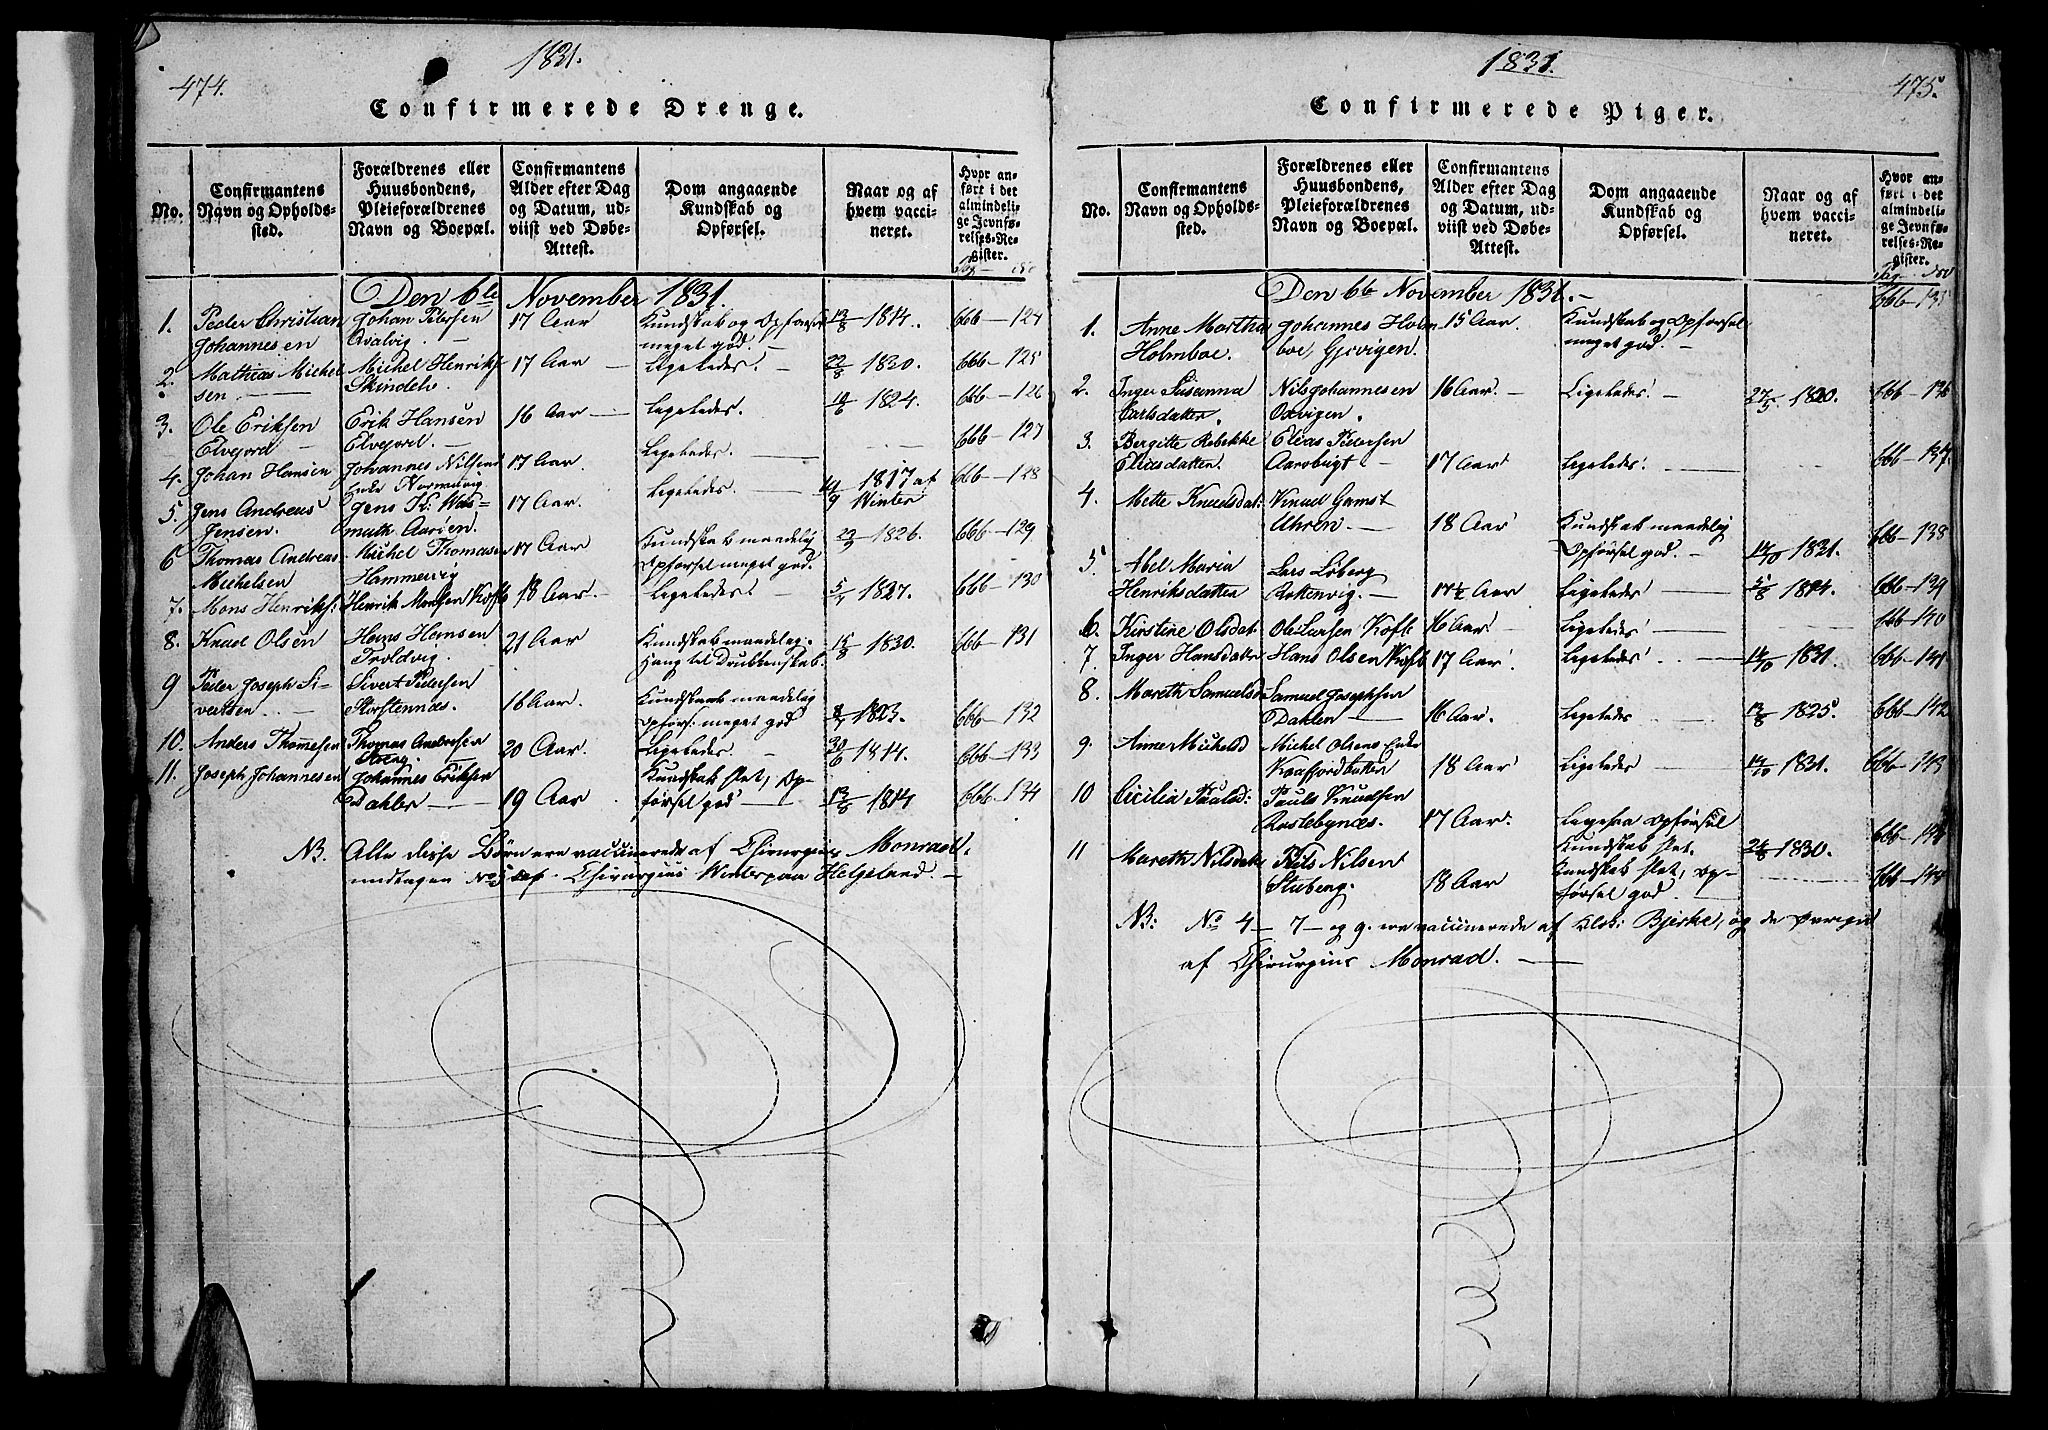 474.
1831.
Confirmerede Drenge.
No.
Confirmantens Navn og Opholdssted.
Forældrenes eller Huusbondens, Pleieforældrenes Navn og Boepæl.
Confirmantens Alder efter Dag og Datum, udviist ved Døbe-Attest.
Dom angaaende Kundskab og Opførsel.
Naar og af hvem vaccineret.
Hvor anført i det almindelige Jevnførelses-Register.
Den 6te November 1831.
1. Peder Christian Johan Petersen 17 Aar Kundskab og Opførsel 13/8 1814. 666-124
Johannesen meget god.
2. Mathias Michel Michel Henriks 17 Aar Ligeledes. 22/8 1830. 666-125
sen
3. Ole Eriksen Erik Hansen 16 Aar Ligeledes. 1824. 666-126
Elvejord Elvejord.
4. Johan Hansen Johannes Nilsens 17 Aar. Ligeledes. 666-127
Enke
5. Jens Andreas Jens 17 Aar. Ligeledes. 1817 af 666-128
Jensen. Winter
6 Thomas Andreas Michel Thomasen 17 Aar Kundskab maadelig 1826. 666-129
Michelsen Hammervig Opførsel meget god.
7. Mons Henriks: Henrik Monsen 18 Aar. Ligeledes. 1827. 666-130
8. Knud Olsen Hans Hansen 21 Aar Kundskab maadelig. 15/8 1830. 666-131
Troldvig. Hang til Drukkenskab.
9 Peder Joseph Si- Sivert Pedersen 18 Aar. Kundskab maadelig
vertsen Storstennæs. Opførs: meget god 1823. 666-132
10. Anders Thomesen Thomas Andresen 20 Aar. Ligeledes. 1814. 666-133
11. Joseph Johannesen Johannes Eriksen Kundskab slet, Op-
19 Aar førsel god 13/8 1814 666-134
NB. Alle disse Børn ere vaccinerede af Chirurgius Monrad.
undtagen No 5 af Chirurgius Winter paa Helgeland.
1831.
475.
Confirmerede Piger.
No.
Confirmantens Navn og Opholdssted.
Forældrenes eller Huusbondens, Pleieforældrenes Navn og Boepæl.
Confirmantens Alder efter Dag og Datum, udviist ved Døbe-Attest.
Dom angaaende Kundskab og Opførsel.
Naar og af hvem vaccineret.
Hvor anført i det almindelige Jevnførelses-Register.
Den 6te November 1831.
1. Anne Martha Johannes Holm- 15 Aar. Kundskab og Opførsel 666-135
Holmboe. boe, Gjovigen. meget god.
2. Inger Susanna Nils Johannesen 16 Aar. Ligeledes. 27/5 1820. 666-136
Carlsdatter. Oxvigen.
3. Bergitte Rebekke Elias Pedersen
Eliasdatter. 17 Aar Ligeledes. 666-137.
4. Mette Knudsdat: Knud Gamst
Uhren. 18 Aar Kundskab maadelig 666-138
Opførsel god. 14/10 1831.
5. Abel Maria Lars Løberg
Henriksdatter Rottenvig. 17½ Aar Ligeledes 1814. 666-139
6. Kirstine Olsdat: Ole Larsen 16 Aar. Ligeledes 666-140
7. Inger Hansdatter Hans Olsen 17 Aar. Ligeledes 14/10 1831. 666-141
8. Mareth Samuelsd: Samuel Josephsen
Dahlen 16 Aar. Ligeledes 13/8 1825. 666-142
9. Anne Michelsd Michel Olsens Enke
18 Aar Ligeledes 14/10 1831. 666-143
10 Cicilia Paulsd: Paul Knudsen
17 Aar. Ligesaa Opførsel
Kundskab slet. 1830. 666-144
11 Mareth Nilsdatter Nils Nilsen Kundskab slet, Op-
Stuberg. 18 Aar førsel god 666-145
NB: No 4 - 7 - og 9. ere vaccinerede af Klok: Bjerke, og de øvrige
af Chirurgius Monrad.